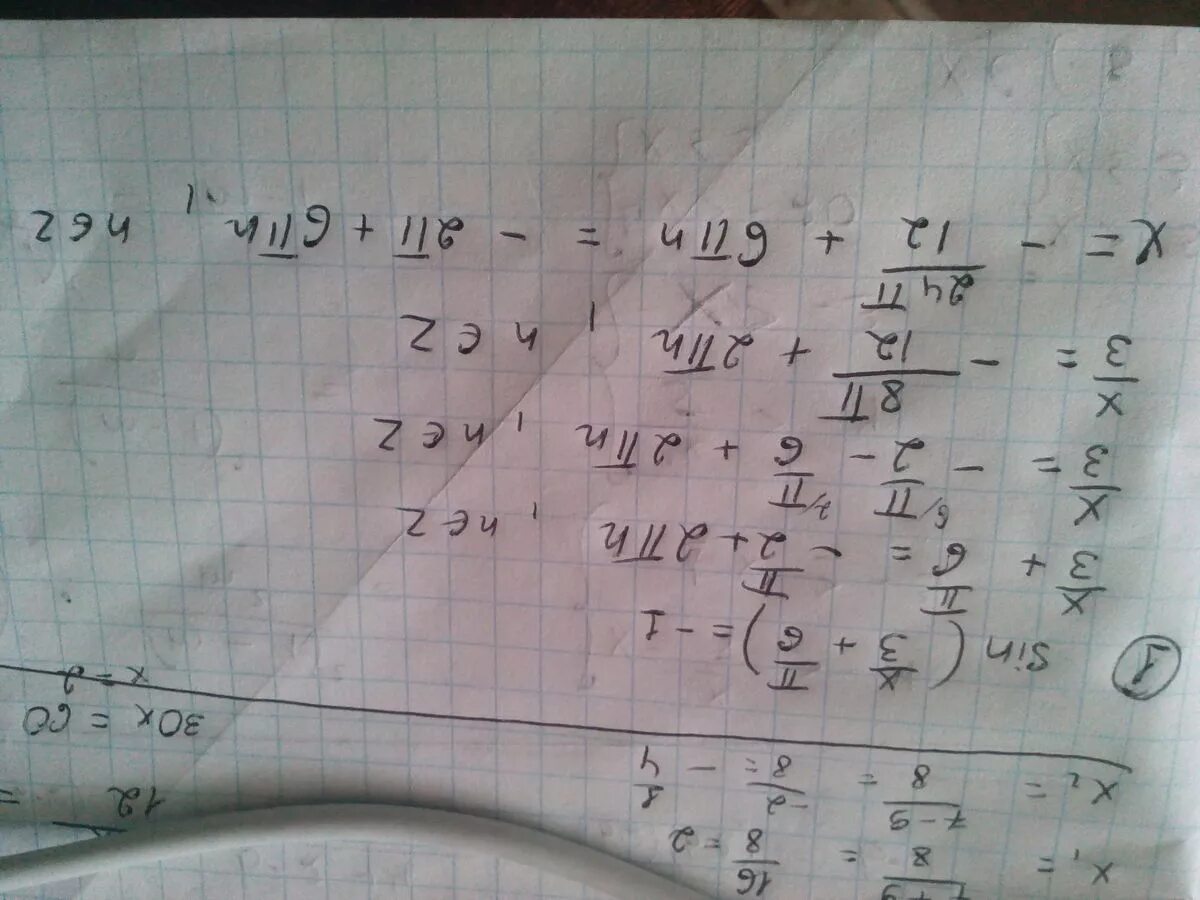 x₁ = (7+9)/8 = 16/8 = 2
x₂ = (7-9)/8 = -2/8 = -1/4
12 =
30x = 60
x = 2
① sin (x/3 + π/6) = -1
x/3 + π/6 = -π/2 + 2πn, n∈z
x/3 = -π/2 - π/6 + 2πn, n∈z
x/3 = -8π/12 + 2πn, n∈z
x = -24π/12 + 6πn = -2π + 6πn, n∈z